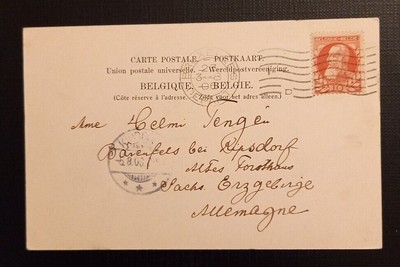 CARTE POSTALE. — POSTKAART.
Union postale universelle. — Wereldpostvereeniging.
BELGIQUE. — BELGIE.
(Côte réservé à l'adresse. — Zijde voor het adres alleen.)
BELGIQUE-BELGIË
Mme Helmi Tengén
Bärenfels bei Kipsdorf
Altes Forsthaus
Sachs. Erzgebirge
Allemagne